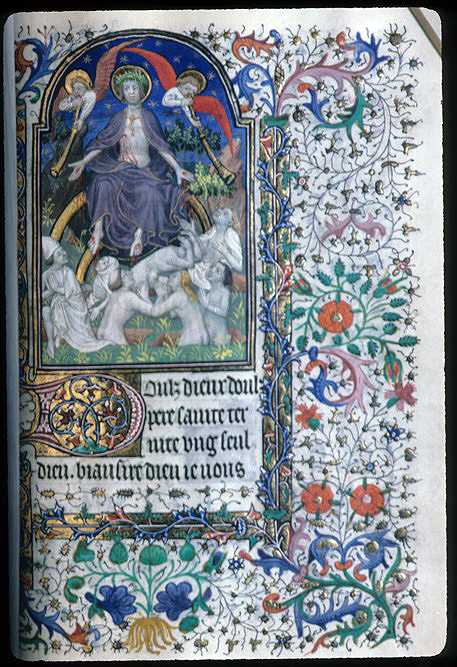 Doulz dieux doulz
pere sainte ter
nite vng seul
dieu. biau sire dieu ie vous